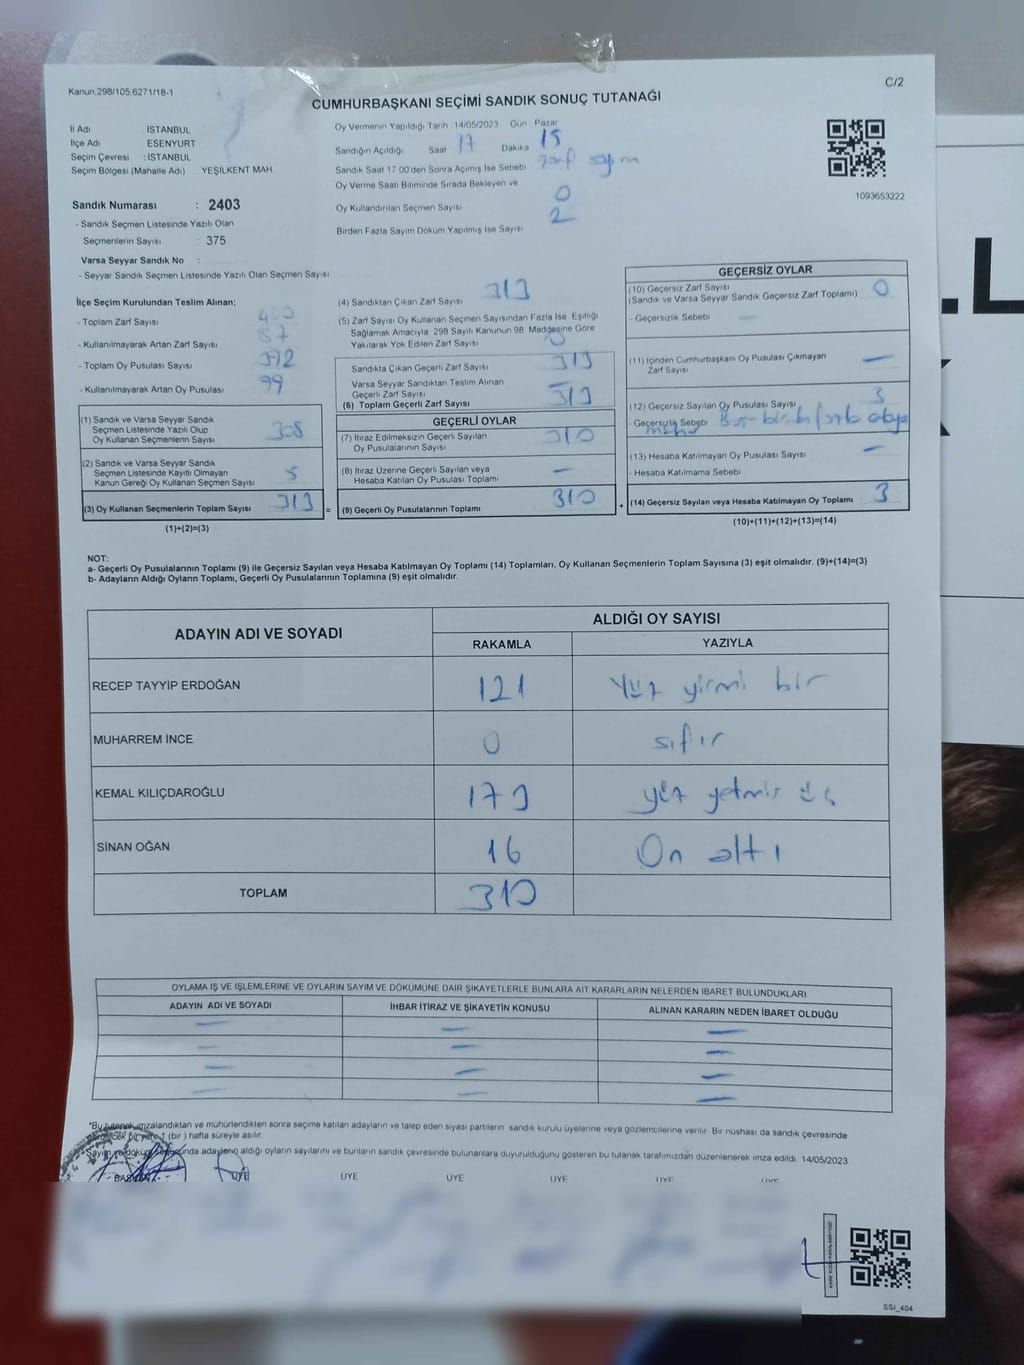 Kanun.298/105.6271/18-1
C/2
CUMHURBAŞKANI SEÇİMİ SANDIK SONUÇ TUTANAĞI
İl Adı İSTANBUL
İlçe Adı ESENYURT
Seçim Çevresi : İSTANBUL
Seçim Bölgesi (Mahalle Adı) YEŞİLKENT MAH
Sandık Numarası : 2403
- Sandık Seçmen Listesinde Yazılı Olan
Seçmenlerin Sayısı : 375
Varsa Seyyar Sandık No :
- Seyyar Sandık Seçmen Listesinde Yazılı Olan Seçmen Sayısı
Oy Vermenin Yapıldığı Tarih 14/05/2023 Gün Pazar
Sandığın Açıldığı Saat 17 Dakika 15
Sandık Saat 17:00'den Sonra Açımış İse Sebebi
Oy Verme Saati Bitiminde Sırada Bekleyen ve
Oy Kullandırılan Seçmen Sayısı 0
Birden Fazla Sayım Döküm Yapılmış İse Sayısı 2
1093653222
İlçe Seçim Kurulundan Teslim Alınan;
- Toplam Zarf Sayısı
- Kullanılmayarak Artan Zarf Sayısı 87
- Toplam Oy Pusulası Sayısı 392
- Kullanılmayarak Artan Oy Pusulası
(1) Sandık ve Varsa Seyyar Sandık
Seçmen Listesinde Yazılı Olup
Oy Kullanan Seçmenlerin Sayısı 308
(2) Sandık ve Varsa Seyyar Sandık
Seçmen Listesinde Kayıtlı Olmayan
Kanun Gereği Oy Kullanan Seçmen Sayısı 5
(3) Oy Kullanan Seçmenlerin Toplam Sayısı 313 =
(1)+(2)=(3)
(4) Sandıktan Çıkan Zarf Sayısı 313
(5) Zarf Sayısı Oy Kullanan Seçmen Sayısından Fazla İse, Eşitliği
Sağlamak Amacıyla: 298 Sayılı Kanunun 98. Maddesine Göre
Yakılarak Yok Edilen Zarf Sayısı
Sandıkta Çıkan Geçerli Zarf Sayısı 313
Varsa Seyyar Sandıktan Teslim Alınan
Geçerli Zarf Sayısı
(6) Toplam Geçerli Zarf Sayısı 313
GEÇERLİ OYLAR
(7) İtiraz Edilmeksizin Geçerli Sayılan
Oy Pusulalarının Sayısı 310
(8) İtiraz Üzerine Geçerli Sayılan veya
Hesaba Katılan Oy Pusulası Toplamı —
(9) Geçerli Oy Pusulalarının Toplamı 310 +
GEÇERSİZ OYLAR
(10) Geçersiz Zarf Sayısı 0
(Sandık ve Varsa Seyyar Sandık Geçersiz Zarf Toplamı)
- Geçersizlik Sebebi —
(11) İçinden Cumhurbaşkanı Oy Pusulası Çıkmayan
Zarf Sayısı —
(12) Geçersiz Sayılan Oy Pusulası Sayısı 3
- Geçersizlik Sebebi
(13) Hesaba Katılmayan Oy Pusulası Sayısı —
- Hesaba Katılmama Sebebi
(14) Geçersiz Sayılan veya Hesaba Katılmayan Oy Toplamı 3
(10)+(11)+(12)+(13)=(14)
NOT:
a- Geçerli Oy Pusulalarının Toplamı (9) ile Geçersiz Sayılan veya Hesaba Katılmayan Oy Toplamı (14) Toplamları, Oy Kullanan Seçmenlerin Toplam Sayısına (3) eşit olmalıdır. (9)+(14)=(3)
b- Adayların Aldığı Oyların Toplamı, Geçerli Oy Pusulalarının Toplamına (9) eşit olmalıdır.
ADAYIN ADI VE SOYADI ALDIĞI OY SAYISI
RAKAMLA YAZIYLA
RECEP TAYYİP ERDOĞAN 121 Yüz yirmi bir
MUHARREM İNCE 0 sıfır
KEMAL KILIÇDAROĞLU 173 yüz yetmiş üç
SİNAN OĞAN 16 On altı
TOPLAM 310
OYLAMA İŞ VE İŞLEMLERİNE VE OYLARIN SAYIM VE DÖKÜMÜNE DAİR ŞİKAYETLERLE BUNLARA AİT KARARLARIN NELERDEN İBARET BULUNDUKLARI
ADAYIN ADI VE SOYADI İHBAR İTİRAZ VE ŞİKAYETİN KONUSU ALINAN KARARIN NEDEN İBARET OLDUĞU
*Bu tutanak imzalandıktan ve mühürlendikten sonra seçime katılan adayların ve talep eden siyasi partilerin sandık kurulu üyelerine veya gözlemcilerine verilir. Bir nüshası da sandık çevresinde
bir yere 1 (bir) hafta süreyle asılır.
adayların aldığı oyların sayılarını ve bunların sandık çevresinde bulunanlara duyurulduğunu gösteren bu tutanak tarafımızdan düzenlenerek imza edildi. 14/05/2023
ÜYE ÜYE ÜYE ÜYE ÜYE ÜYE
SSI_404